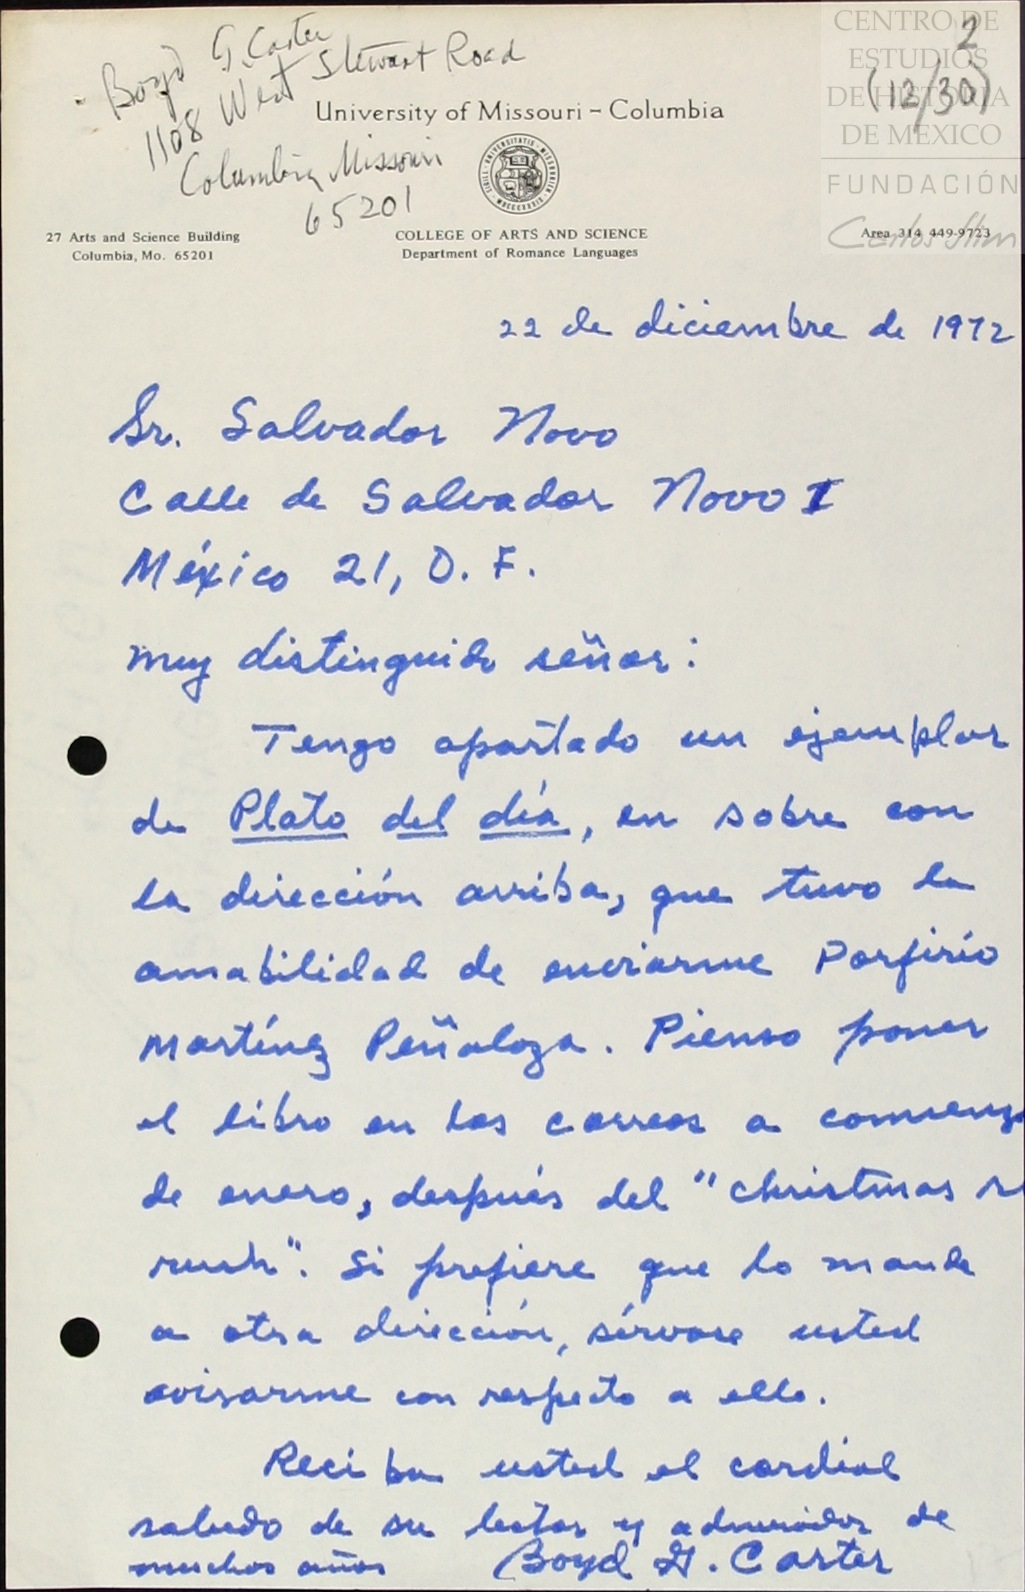 CENTRO DE
ESTUDIOS
DE HISTORIA
DE MÉXICO
FUNDACIÓN
Carlos Slim
2
(12/30)
Boyd G. Carter
1108 West Stewart Road
Columbia, Missouri
65201
University of Missouri – Columbia
27 Arts and Science Building
Columbia, Mo. 65201
COLLEGE OF ARTS AND SCIENCE
Department of Romance Languages
Area 314 449-9723
22 de diciembre de 1972
Sr. Salvador Novo
Calle de Salvador Novo I
México 21, D. F.
Muy distinguido señor:
Tengo apartado un ejemplar
de Plato del día, en sobre con
la dirección arriba, que tuvo la
amabilidad de enviarme Porfirio
Martínez Peñaloza. Pienso poner
el libro en los correos a comienzo
de enero, después del "christmas r
rush". Si prefiere que lo mande
a otra dirección, sírvase usted
avisarme con respecto a ello.
Reciba usted el cordial
saludo de su lector y admirador de
muchos años Boyd G. Carter